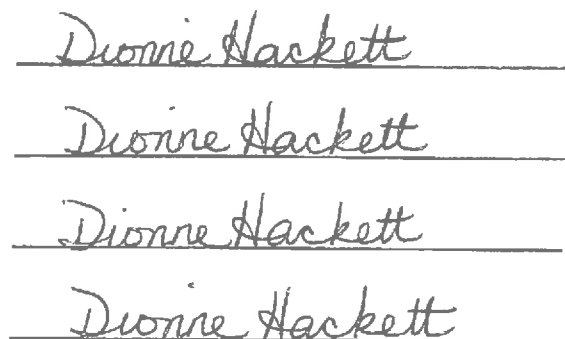 Dionne Hackett
Dionne Hackett
Dionne Hackett
Dionne Hackett